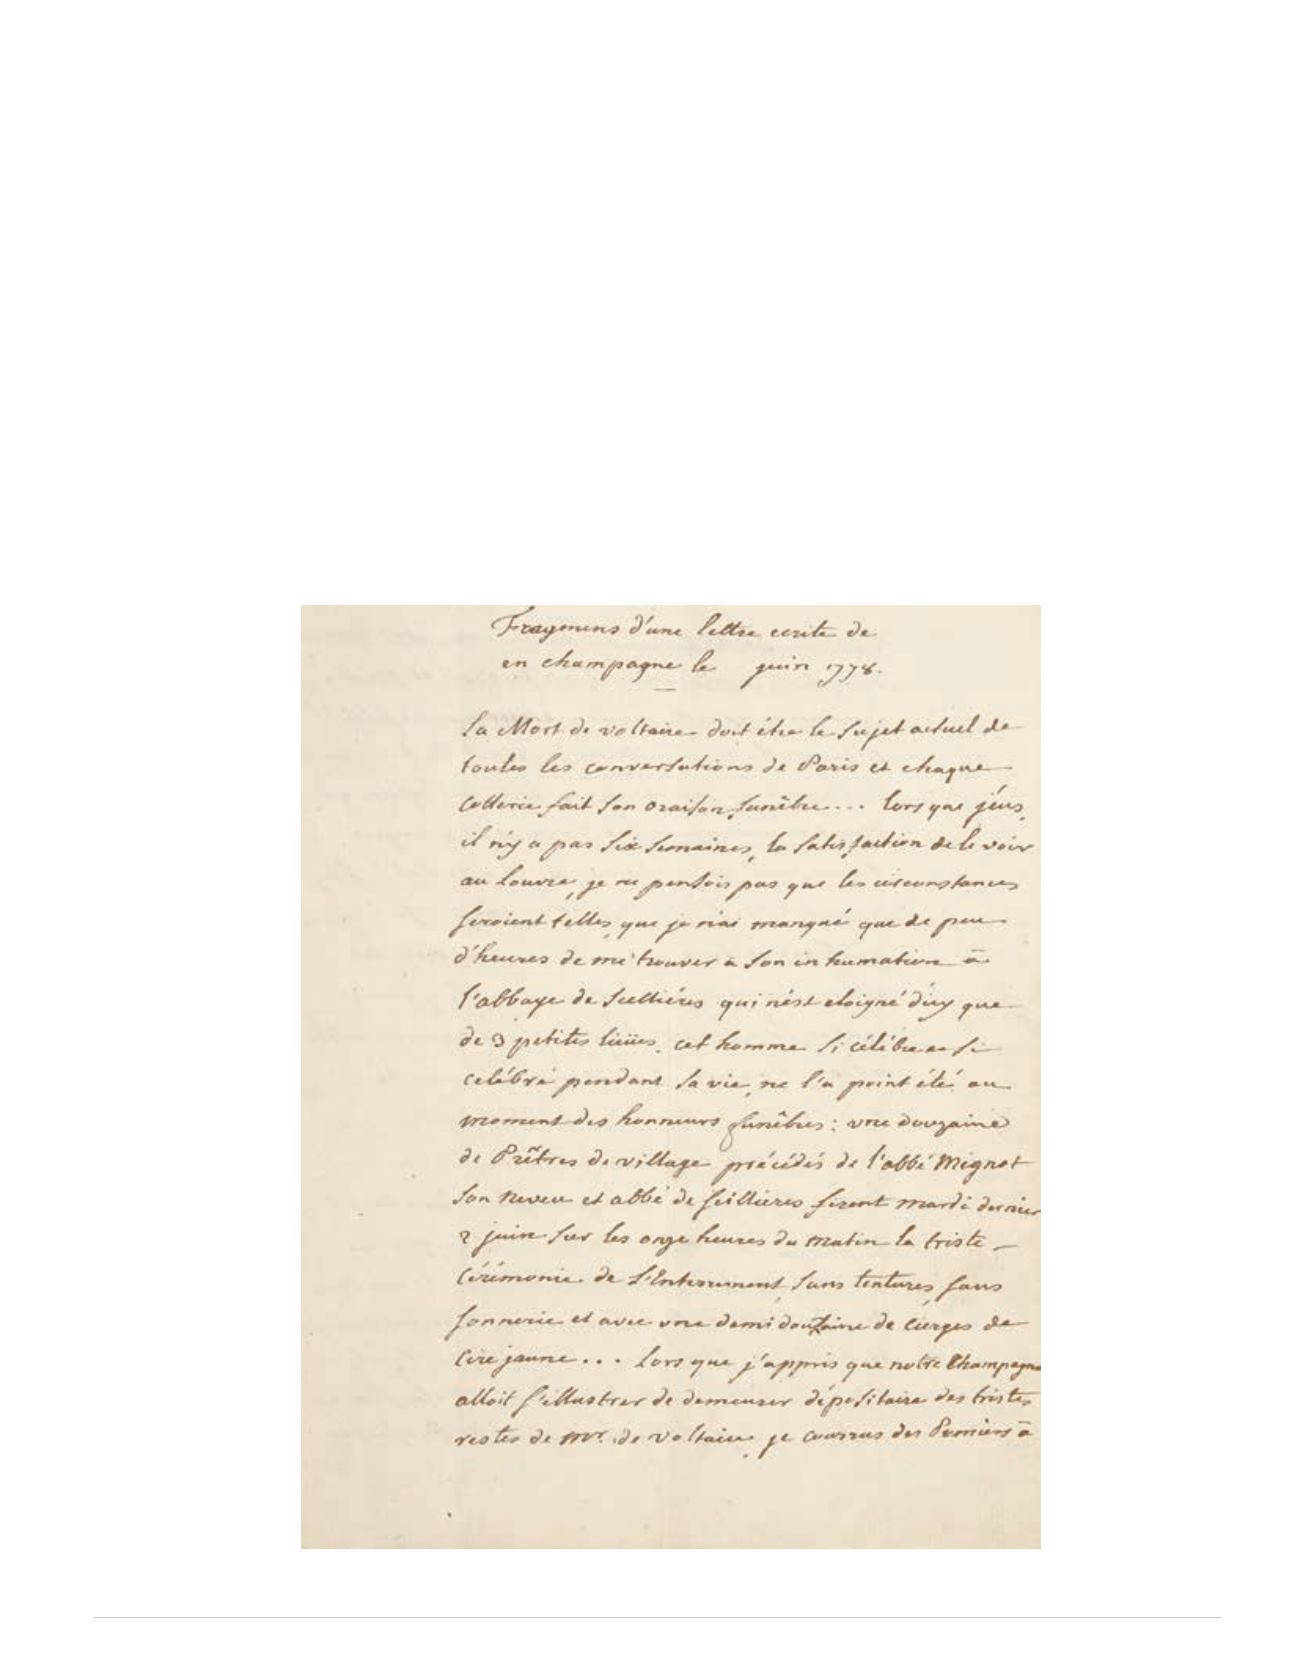 Fragmens d'une lettre ecrite de
en champagne le juin 1778.
La Mort de voltaire doit être le Sujet actuel de
toutes les conversations de Paris et chaque
Cotterie fait son oraison funêbre... lorsque j'eus,
il n'y a pas six semaines, la satisfaction de le voir
au louvre, je ne pensois pas que les circonstances
seroient telles, que je n'ai manqué que de peu
d'heures de me trouver à son inhumation à
l'abbaye de Scelliéres qui n'est eloigné d'icy que
de 3 petites lieües. cet homme si célébre et si
celébré pendant sa vie, ne l'a point été au
moment des honneurs funêbres : une douzaine
de Prêtres de village précédés de l'abbé Mignot
son Neveu et abbé de Scellieres firent mardi dernier
2 juin sur les onze heures du matin la triste
Cérémonie de L'Enterrement, sans tentures, sans
sonnerie et avec une demi douzaine de Cierges de
Cire jaune... lorsque j'appris que notre Champagne
alloit s'illustrer de demeurer dépositaire des tristes
restes de Mr. de voltaire, je courrus des Premiers à